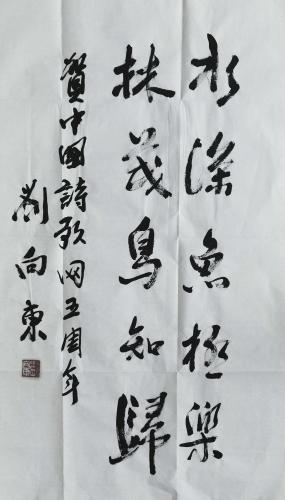 水深鱼極樂
林茂鳥知歸
賀中國詩歌网五周年
劉向東